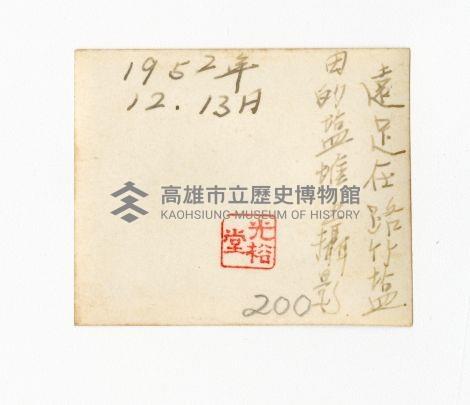 1952年
12.13日
遠足在路竹塩
田的塩堆攝影
高雄市立歷史博物館
KAOHSIUNG MUSEUM OF HISTORY
光裕
堂
200